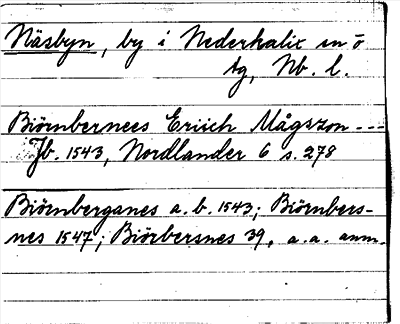 Näsbyn, by i Nederkalix sn o
tg, Nb. l.
Biörnbernees Eriich Mågszon ---
Jb. 1543, Nordlander 6 s. 278
Biörnberganes a. b. 1543; Biörnbers-
nes 1547; Biörbersnes 39, a. a. anm.